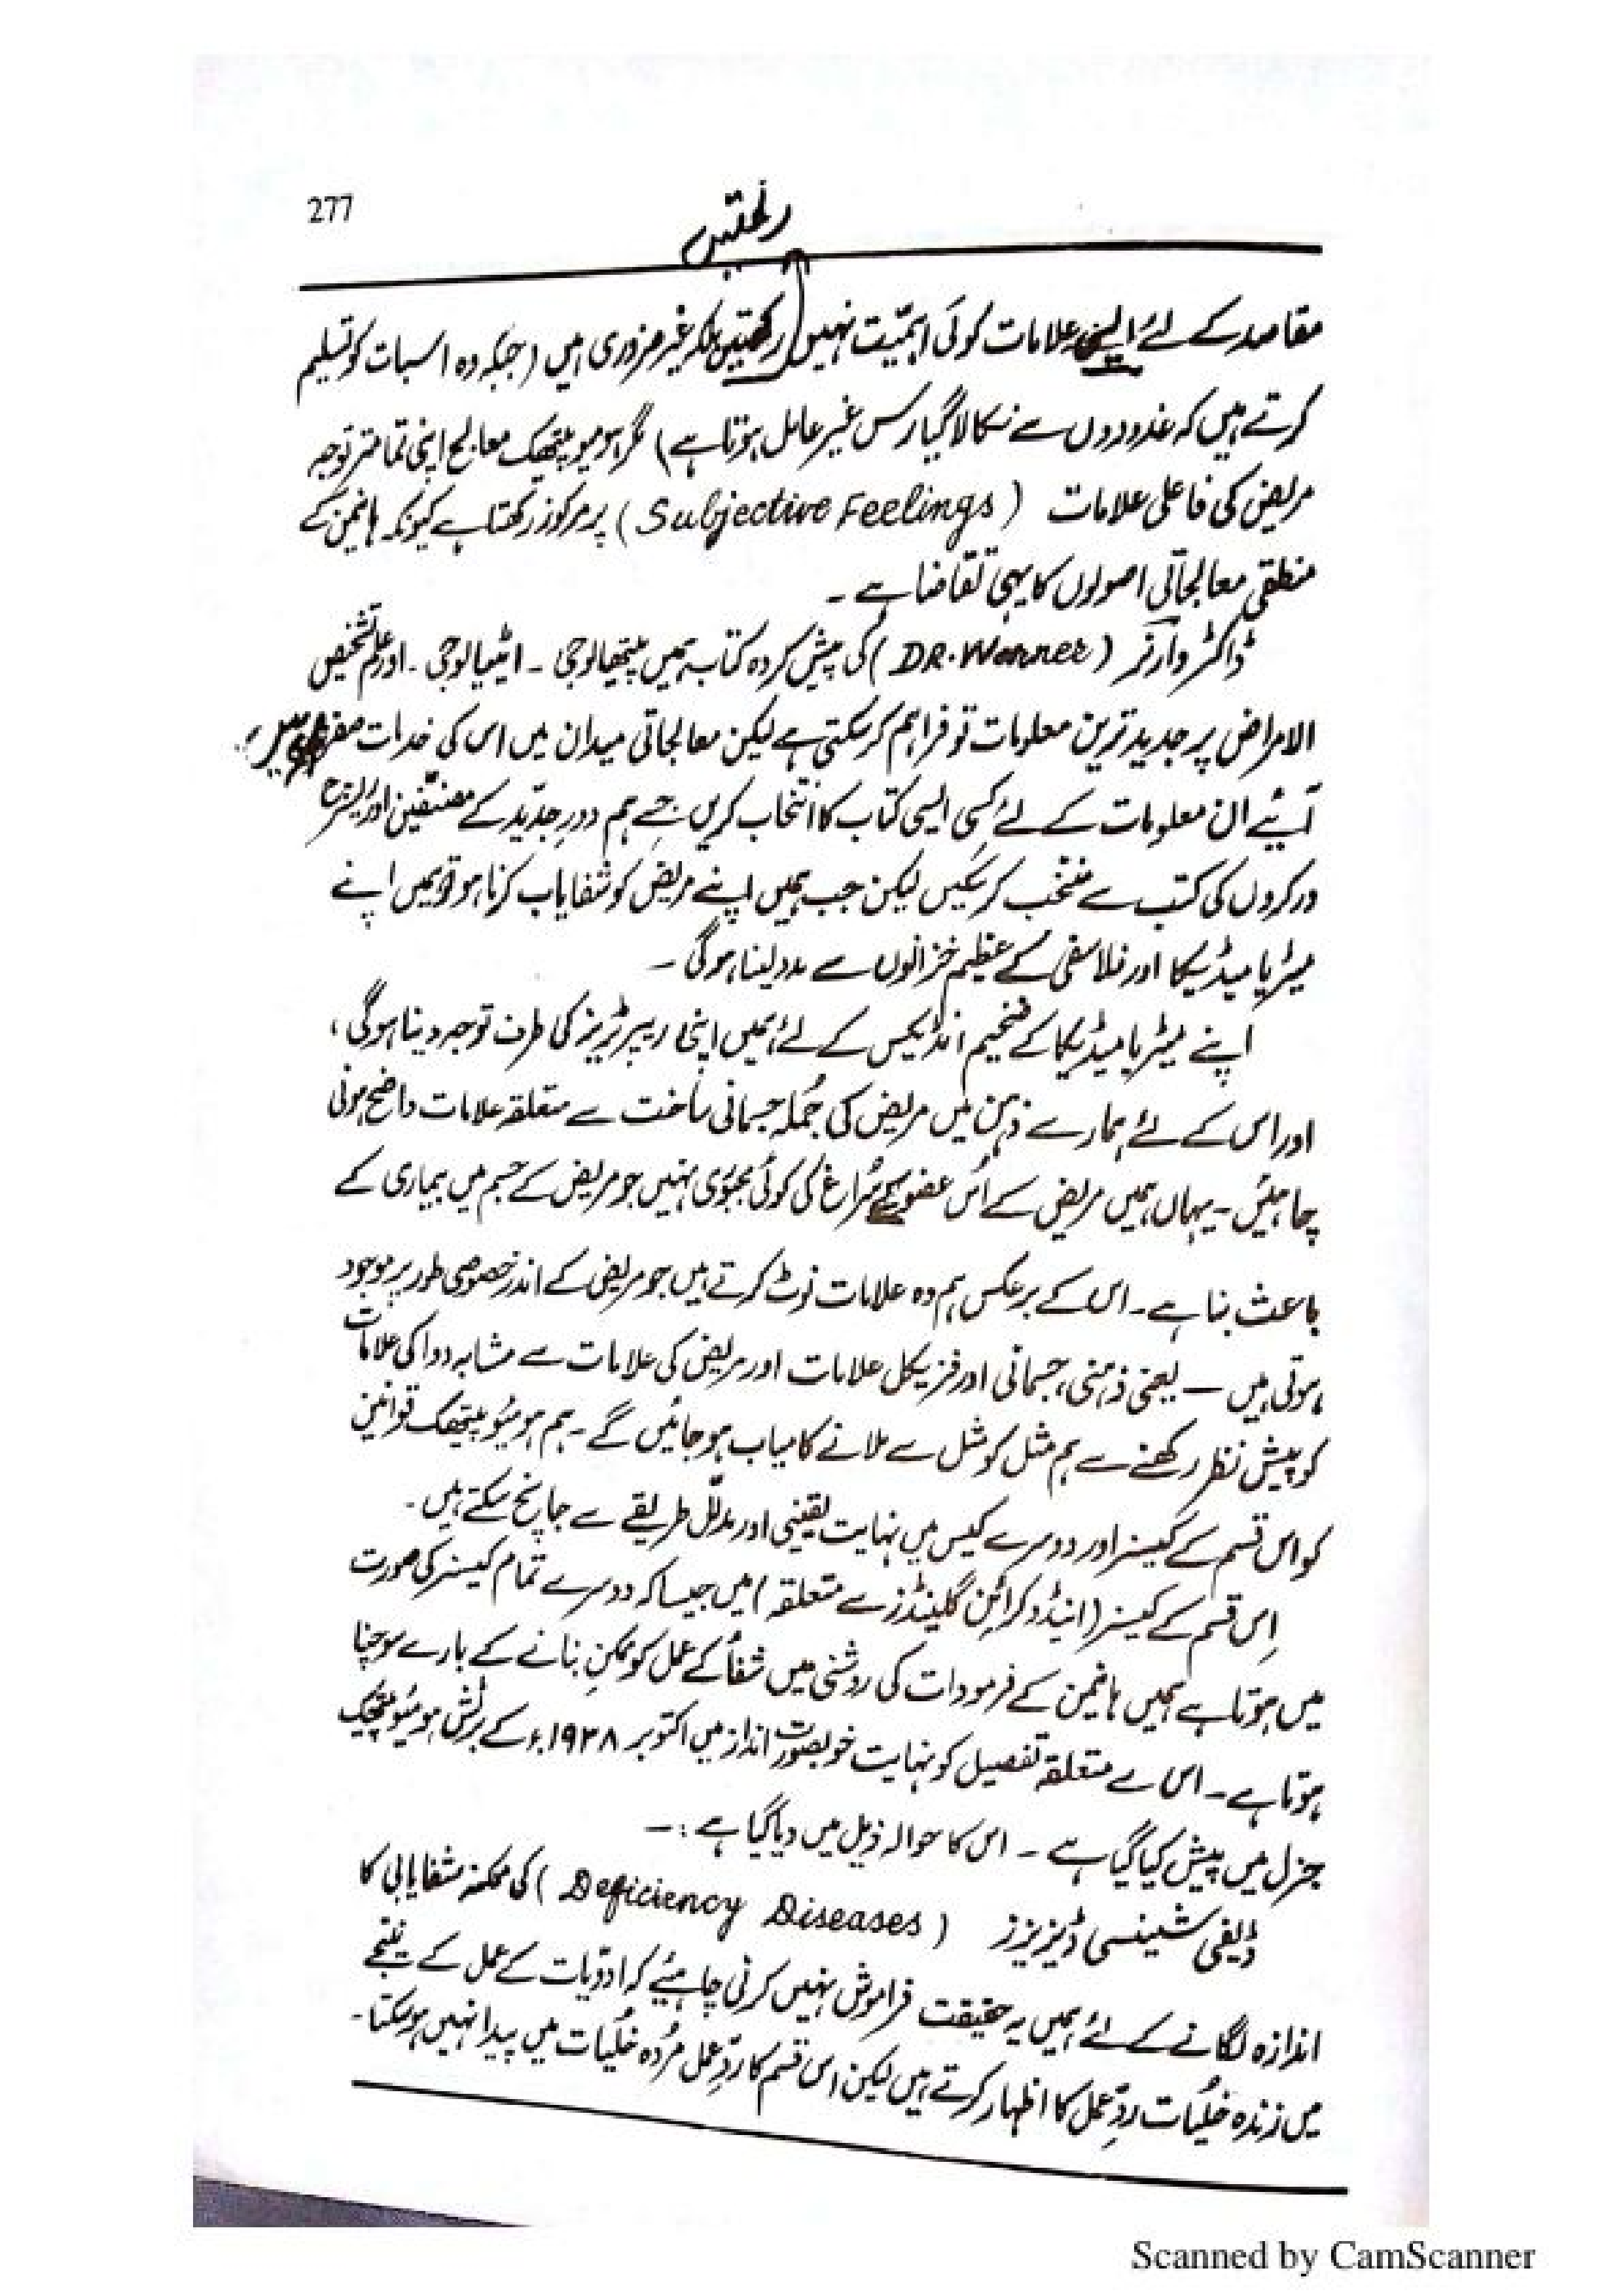 277
رکھتیں
مقاصد کے لئے ایسی علامات کوئی اہمیّت نہیں رکھتیں بلکہ غیر ضروری ہیں (جبکہ وہ اس بات کو تسلیم
کرتے ہیں کہ غدودوں سے نکالا گیا رس غیر عامل ہوتا ہے) مگر ہومیوپیتھک معالج اپنی تمامتر توجہ
مریض کی فاعلی علامات (Subjective Feelings) پر مرکوز رکھتا ہے کیونکہ ہانمن کے
منطقی معالجاتی اصولوں کا یہی تقاضا ہے ۔
ڈاکٹر وارنر (DR. Warner) کی پیش کردہ کتاب ہمیں پیتھالوجی ۔ اٹیالوجی ۔ اور علم تشخیص
الامراض پر جدید ترین معلومات تو فراہم کر سکتی ہے لیکن معالجاتی میدان میں اس کی خدمات صفر
آیئے ان معلومات کے لئے کسی ایسی کتاب کا انتخاب کریں جسے ہم دورِ جدید کے مصنّفین اور ریسرچ
ورکروں کی کتب سے منتخب کر سکیں لیکن جب ہمیں اپنے مریض کو شفایاب کرنا ہو تو ہمیں اپنے
میٹریا میڈیکا اور فلاسفی کے عظیم خزانوں سے مدد لینا ہوگی ۔
اپنے میٹریا میڈیکا کے ضخیم انڈیکس کے لئے ہمیں اپنی ریپرٹریز کی طرف توجہ دینا ہوگی ،
اور اس کے لئے ہمارے ذہن میں مریض کی جُملہ جسمانی ساخت سے متعلقہ علامات واضح ہونی
چاہئیں ۔ یہاں ہمیں مریض کے اُس عضو کے سُراغ کی کوئی مجبوری نہیں جو مریض کے جسم میں بیماری کے
باعث بنا ہے ۔ اس کے برعکس ہم وہ علامات نوٹ کرتے ہیں جو مریض کے اندر خصوصی طور پر موجود
ہوتی ہیں — یعنی ذہنی، جسمانی اور فزیکل علامات اور مریض کی علامات سے مشابہ دوا کی علامات
کو پیش نظر رکھنے سے ہم مثل کو مثل سے ملانے کامیاب ہو جائیں گے ۔ ہم ہومیوپیتھک قوانین
کو اس قسم کے کیسز اور دوسرے کیس میں نہایت یقینی اور مدلّل طریقے سے جانچ سکتے ہیں ۔
اِس قسم کے کیسز (انیڈوکرائن گلینڈز سے متعلقہ) میں جیسا کہ دوسرے تمام کیسز کی صورت
میں ہوتا ہے ہمیں ہانمن کے فرمودات کی روشنی میں شفاء کے عمل کو ممکن بنانے کے بارے سوچنا
ہوتا ہے ۔ اس سے متعلقہ تفصیل کو نہایت خوبصورت انداز میں اکتوبر ۱۹۳۸ء کے برٹش ہومیوپیتھک
جنرل میں پیش کیا گیا ہے ۔ اس کا حوالہ ذیل میں دیا گیا ہے :۔
ڈیفی شینسی ڈیزیزز (Deficiency Diseases) کی ممکنہ شفایابی کا
اندازہ لگانے کے لئے ہمیں یہ حقیقت فراموش نہیں کرنی چاہیئے کہ ادویات کے عمل کے نتیجے
میں زندہ خلیات ردِّعمل کا اظہار کرتے ہیں لیکن اس قسم کا ردِّعمل مُردہ خلیات میں پیدا نہیں ہو سکتا ۔
Scanned by CamScanner